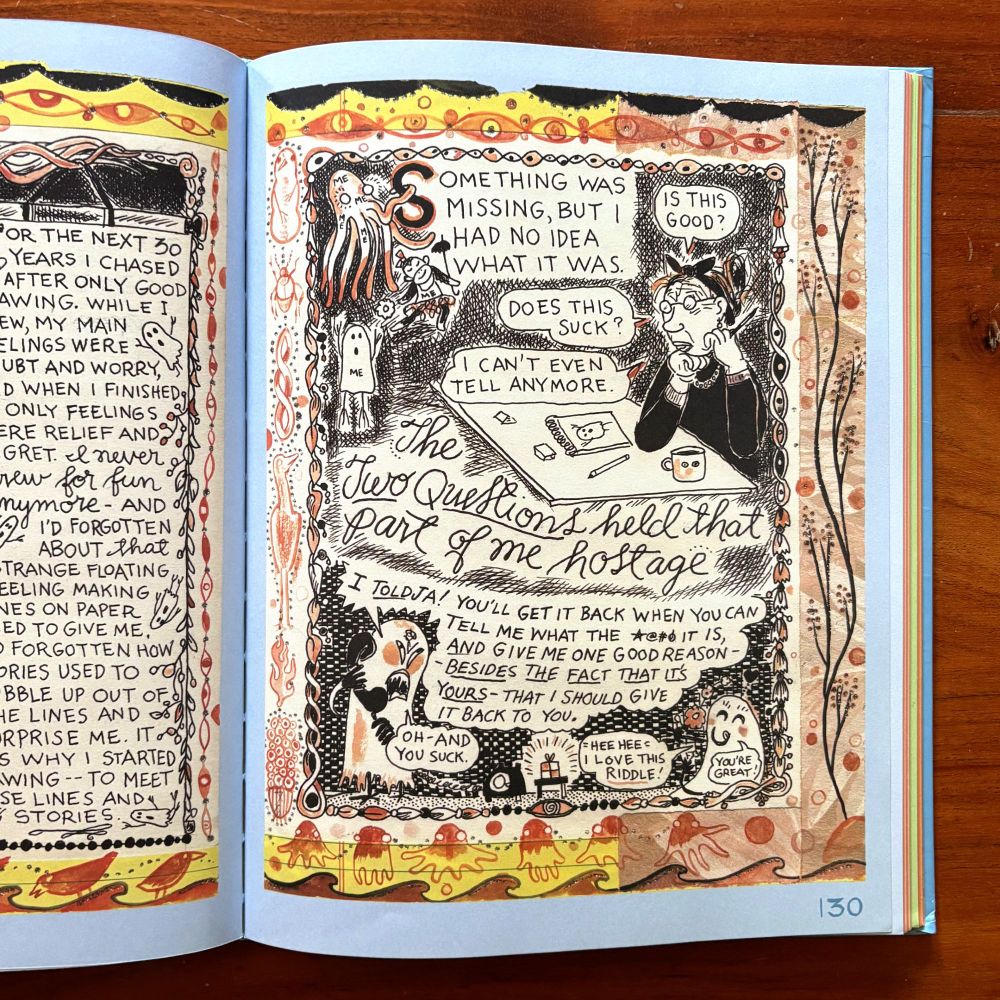 OR THE NEXT 30
YEARS I CHASED
AFTER ONLY GOOD
AWING. WHILE I
EW, MY MAIN
ELINGS WERE
UBT AND WORRY,
D WHEN I FINISHED
ONLY FEELINGS
ERE RELIEF AND
GRET. I never
rew for fun
nymore - AND
I'D FORGOTTEN
ABOUT that
STRANGE FLOATING
EELING MAKING
NES ON PAPER
ED TO GIVE ME,
D FORGOTTEN HOW
ORIES USED TO
BBLE UP OUT OF
HE LINES AND
URPRISE ME. IT
S WHY I STARTED
AWING -- TO MEET
SE LINES AND
STORIES.
ME
ME
SOMETHING WAS
MISSING, BUT I
HAD NO IDEA
WHAT IT WAS.
IS THIS
GOOD?
DOES THIS
SUCK?
ME
I CAN'T EVEN
TELL ANYMORE.
The
Two Questions held that
part of me hostage
I TOLDJA! YOU'LL GET IT BACK WHEN YOU CAN
TELL ME WHAT THE *@#¢ IT IS,
AND GIVE ME ONE GOOD REASON -
BESIDES THE FACT THAT IT'S
YOURS - THAT I SHOULD GIVE
IT BACK TO YOU.
OH - AND
YOU SUCK.
=HEE HEE=
I LOVE THIS
RIDDLE!
YOU'RE
GREAT!
130